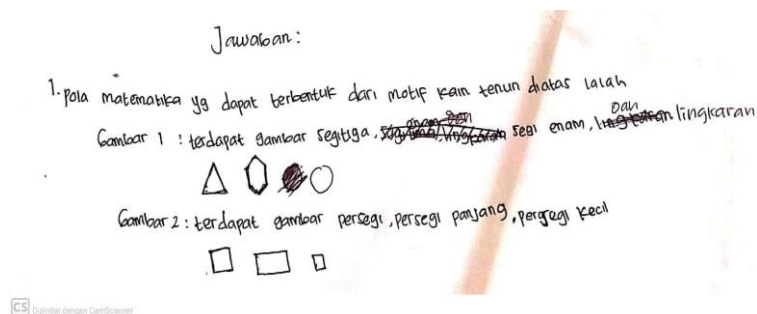 Jawaban :
1. Pola matematika yg dapat terbentuk dari motif kain tenun diatas ialah
Gambar 1 : terdapat gambar segitiga, segi enam, Dan lingkaran
Gambar 2 : terdapat gambar persegi, persegi panjang, persegi kecil
CS Dipindai dengan CamScanner